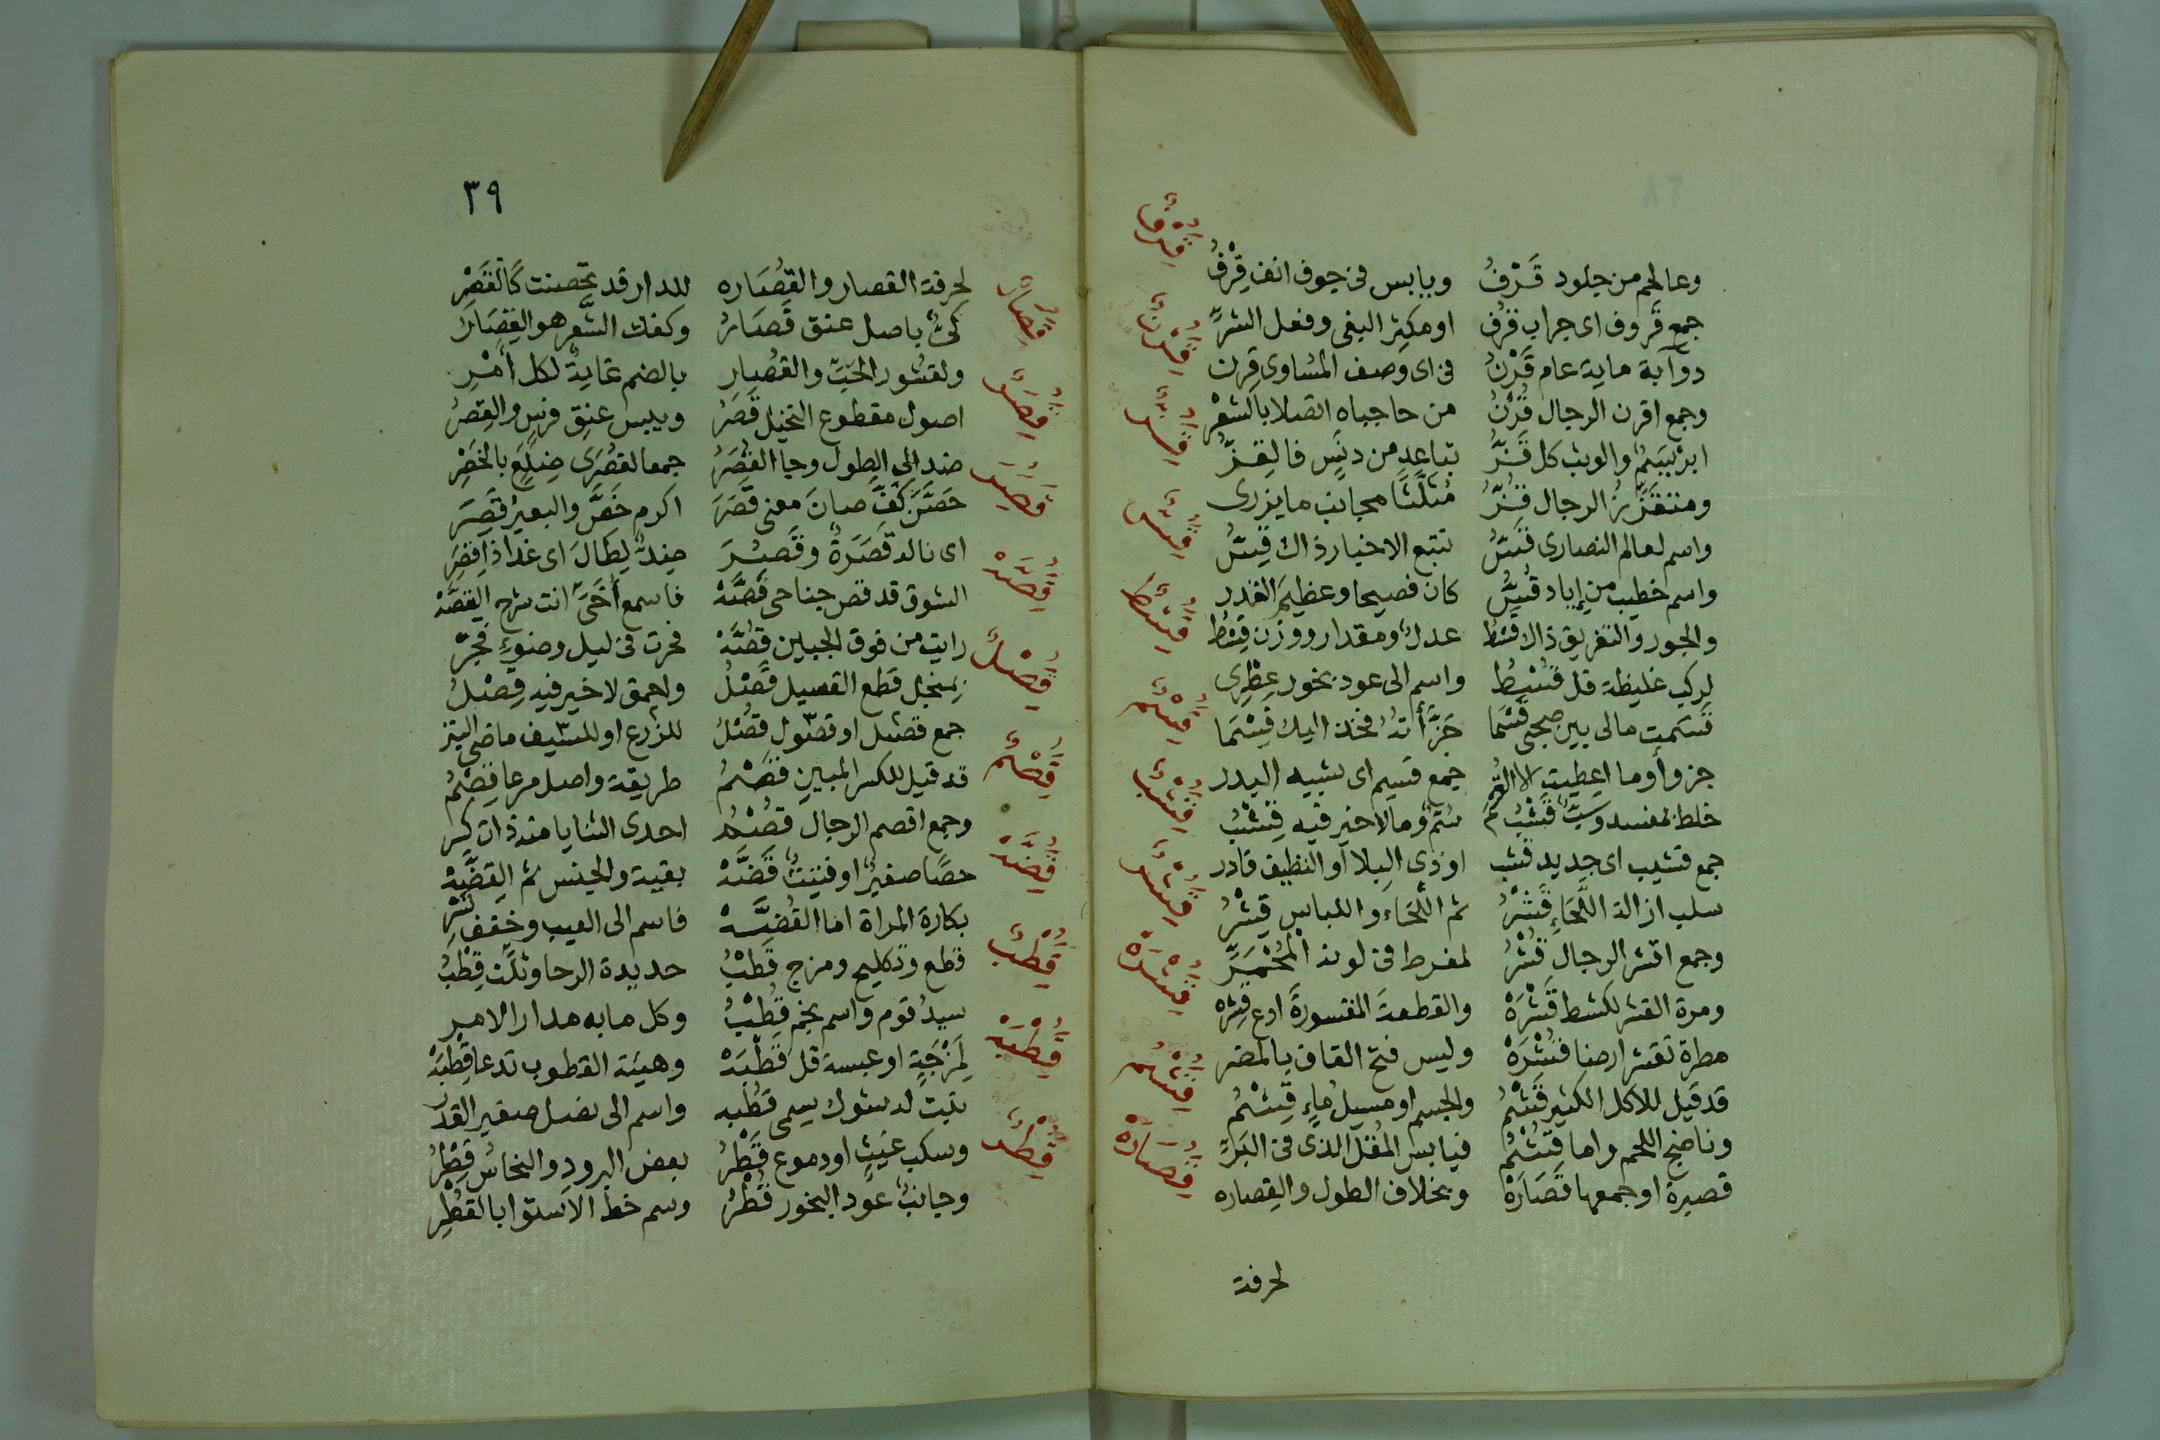 وعا لحم من جلود قَرْفُ ويابس فى جوف انف قِرْفُ
جمع قروف اى جراب قُرُف او مكثر البغى وفعل الشرِّ
دوابة ماية عام قَرْنُ فى اى وصف المساوى قِرن
وجمع اقرن الرجال قُرْنُ من حاجباه اتصلا بالشعْر
والوثب كل قَزُّ تباعد من دنس فالقِزُّ
ومتقزز الرجال قُزُّ مثلثا مجانب ما يزرى
واسم لعالم النصارى قَسُّ تتبع الاخبار ذاك قِسُّ
واسم خطيب من إياد قُسُّ كان فصيحا وعظيم القدر
والجور والتفريق ذاك قَسْطُ عدل ومقدار ووزن قِسْطُ
لركب غليظة قل قُسْطُ واسم الى عود بخور عِطْرِى
قسمت مالى بين صحبى قَسْمَا جزّأته فخذ اليك قِسْمَا
جزوا وما اعطيت الا القُسْم جمع قسيم اى شبيه البدر
خلط بمفسد وسبّ قَشْبُ سُمّ وما لا خير فيه قِشْبُ
جمع قشيب اى جديد قشب او ذى البلا او النظيف قادر
سلب ازالة اللحاءِ قَشْرُ ثم اللحاء واللباس قِشْرُ
وجمع اقشر الرجال قُشْرُ لمفرط فى لونه المُحْمَرِّ
ومرة القشر لكشط قَشْرَهْ والقطعة المقسورة ادع قِشره
مطرة تقشر ارضنا قُشْرَهْ وليس فتح القاف بالمضر
قد قيل للاكل الكثير قَشْمُ والجسم او مسيل مآءٍ قِشْمُ
وناضج اللحم واما قُشْمُ فيابس المقل الذى فى البَرِّ
قصيرة او جمعها قَصَارَهْ وبخلاف الطول والقِصاره
لحرفة
قِرْفُ
قِرْنُ
قِزُّ
قِسُّ
قِسْطُ
قِسْمُ
قِشْبُ
قِشْرُ
قِشْرَهْ
قِشْمُ
قِصَارَهْ
٣٩
لحرفة القصار والقُصَاره للدار قد تحصنت كالقَصْرِ
كىّ باصل عنق قَصَارُ وكفك الشعر هو القِصَارُ
ولقشور الحبّ والقُصار بالضم غاية لكل أمْرِ
اصول مقطوع النخيل قَصَرُ ويبس عنق فرس والقِصَرُ
ضد الى الطول وجا القُصَرُ جمعا لقُصْرَى ضلع بالخَصْرِ
كفّ صان معنى قَصَرَ اكرم والبعير قَصِرَ
اى ناله قَصَرَةٌ وقَصُرَ ضدّ لِطَالَ اى غدا ذا قِصَرِ
الشوق قد قص جناحى قَصَّهْ فاسمع أُخَىّ انت شرح القِصَّهْ
رايت من فوق الجبين قُصَّهْ فحرت فى ليل وضوءِ فجْرِ
بمنجل قطع القصيل قَصْلُ واحمق لا خير فيه قِصْلُ
جمع قصيل او قصول قُصْلُ للزرع او للسيف ماضى البتر
قد قيل للكسر المبين قَصْمُ طريقة واصل مرعا قِصْمُ
وجمع اقصم الرجال قُصْمُ احدى الثنايا منه ذات كسر
حصا صغير او فتيت قَضَّهْ بقية والجنس ثم القِضَّهْ
بكارة المراة اما القُضَّهْ فاسم الى العيب وخفف تَسْرِ
قطع وتكليح ومزج قَطْبُ حديدة الرحا وثلث قِطْبُ
سيدُ قوم واسم نجم قُطْبُ وكل ما به مدار الامر
لِمَزْجَةٍ او عبسة قل قَطْبَهْ وهيئة القطوب تدعا قِطْبَهْ
نبت له شوك يسمى قطبه واسم الى نصل صغير القدر
وسكب غيث او دموع قَطْرُ بعض البرود والنحاسُ قِطْرُ
وجانبٌ عود البخور قُطْرُ وسم خط الاستوا بالقُطْرِ
قِصَارُ
قِصَرُ
قَصِرَ
قِصَّهْ
قِصْلُ
قِصْمُ
قِضَّهْ
قِطْبُ
قِطْبَهْ
قِطْرُ